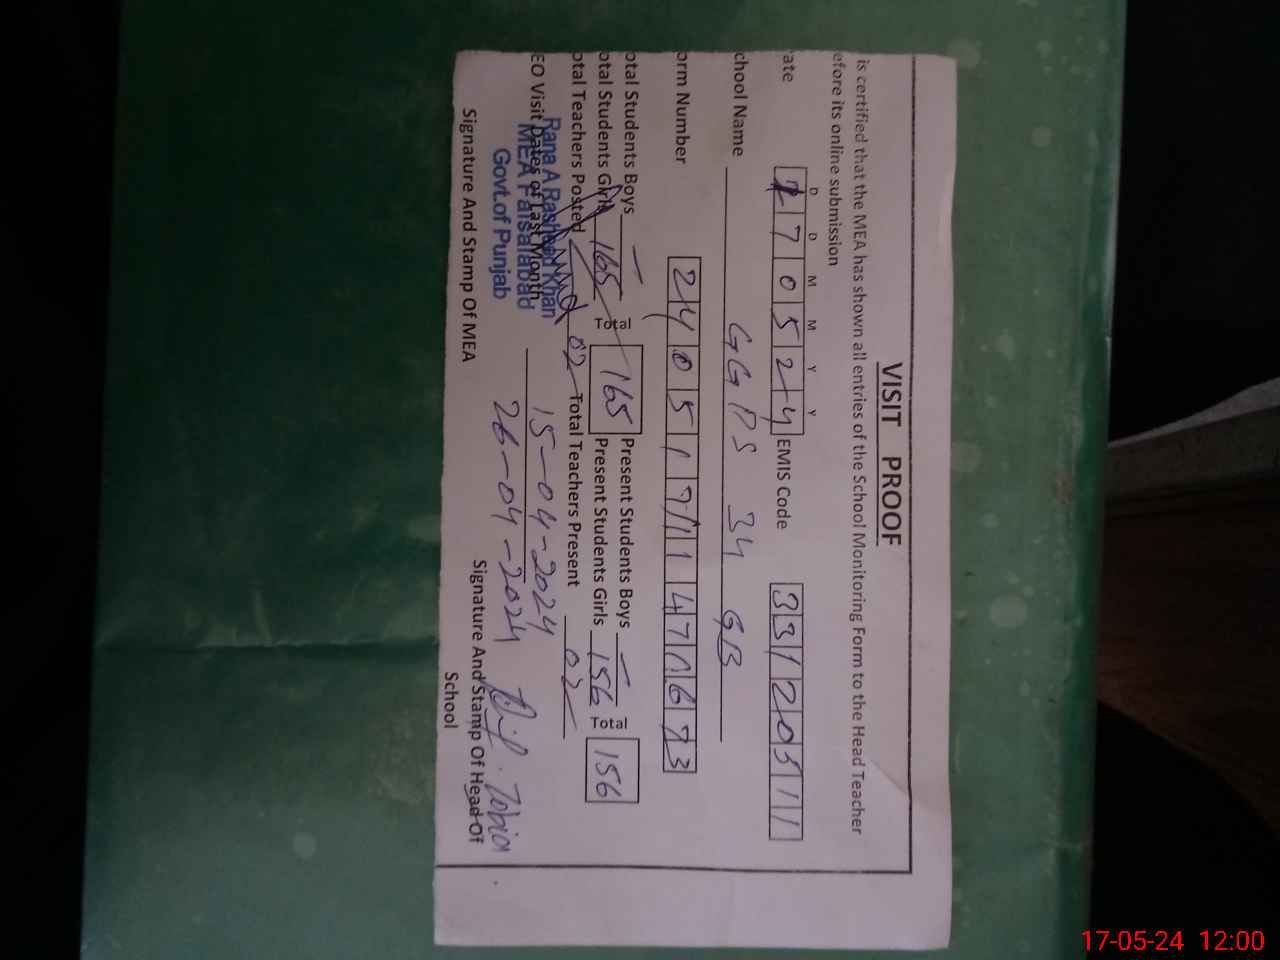 VISIT PROOF
is certified that the MEA has shown all entries of the School Monitoring Form to the Head Teacher
efore its online submission
D D M M Y Y
ate 170524 EMIS Code 33120511
chool Name GGPS 34 GB
orm Number
otal Students Boys — Present Students Boys —
otal Students Girls 165 Total 165 Present Students Girls 156 Total 156
otal Teachers Posted 02 Total Teachers Present 02
EO Visit Dates of Last Month 15-04-2024
26-04-2024
Rana A Rasheed Khan
MEA Faisalabad
Govt.of Punjab
Signature And Stamp Of MEA
Signature And Stamp Of Head Of
School
17-05-24 12:00